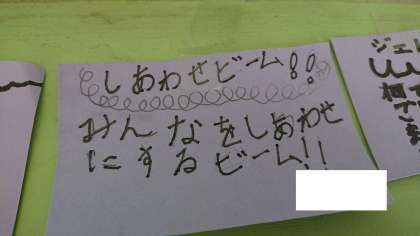 しあわせビーム!!
みんなをしあわせ
にするビーム!!